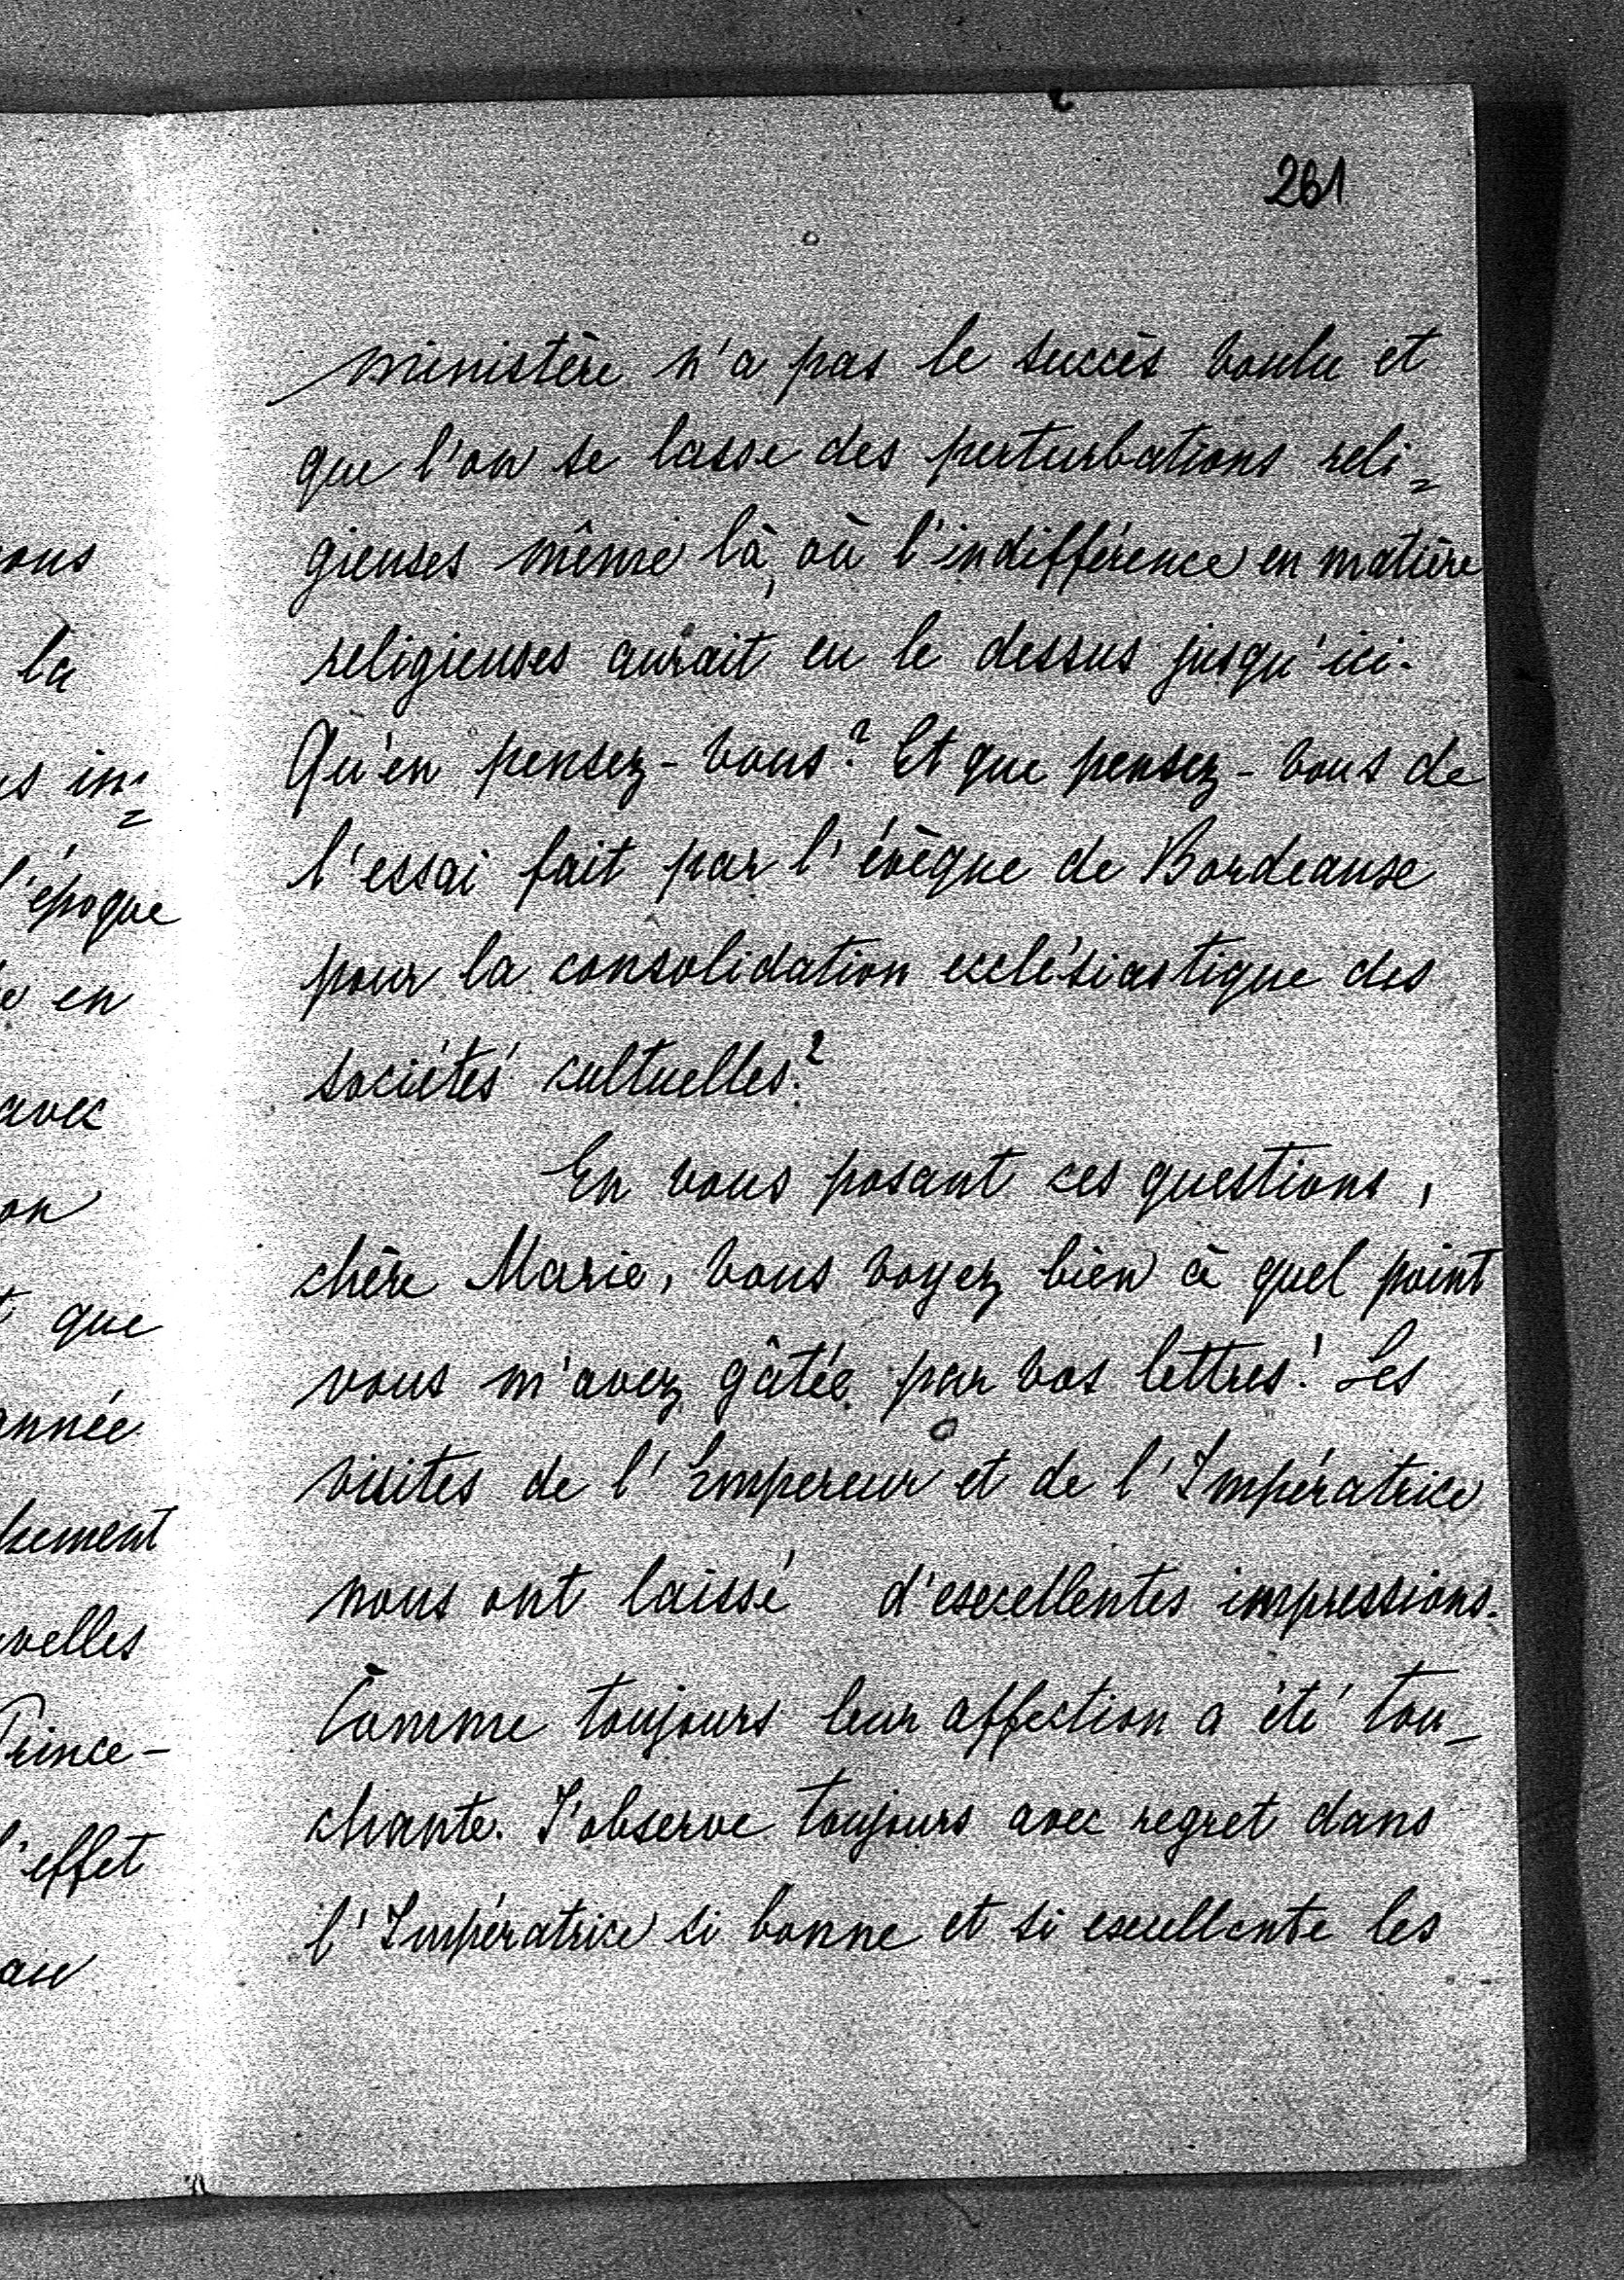 261
ministère n'a pas le succès voulu et
que l'on se lasse des perturbations reli=
gieuses même là, où l'indifférence en matière
religieuses aurait eu le dessus jusqu'ici.
Qu'en pensez-vous? Et que pensez-vous de
l'essai fait par l'évèque de Bordeause
pour la consolidation ecclésiastique des
sociétés cultuelles?
En vous posant ces questions,
chère Marie, vous voyez bien à quel point
vous m'avez gâtée par vos lettres! Les
visites de l'Empereur et de l'Impératrice
nous ont laissé d'excellentes impressions.
Comme toujours leur affection a été tou-
chante. J'observe toujours avec regret dans
l'Impératrice si bonne et si excellente les
ous
la
s in=
l'époque
en
avec
on
que
année
sement
velles
Prince-
l'effet
au